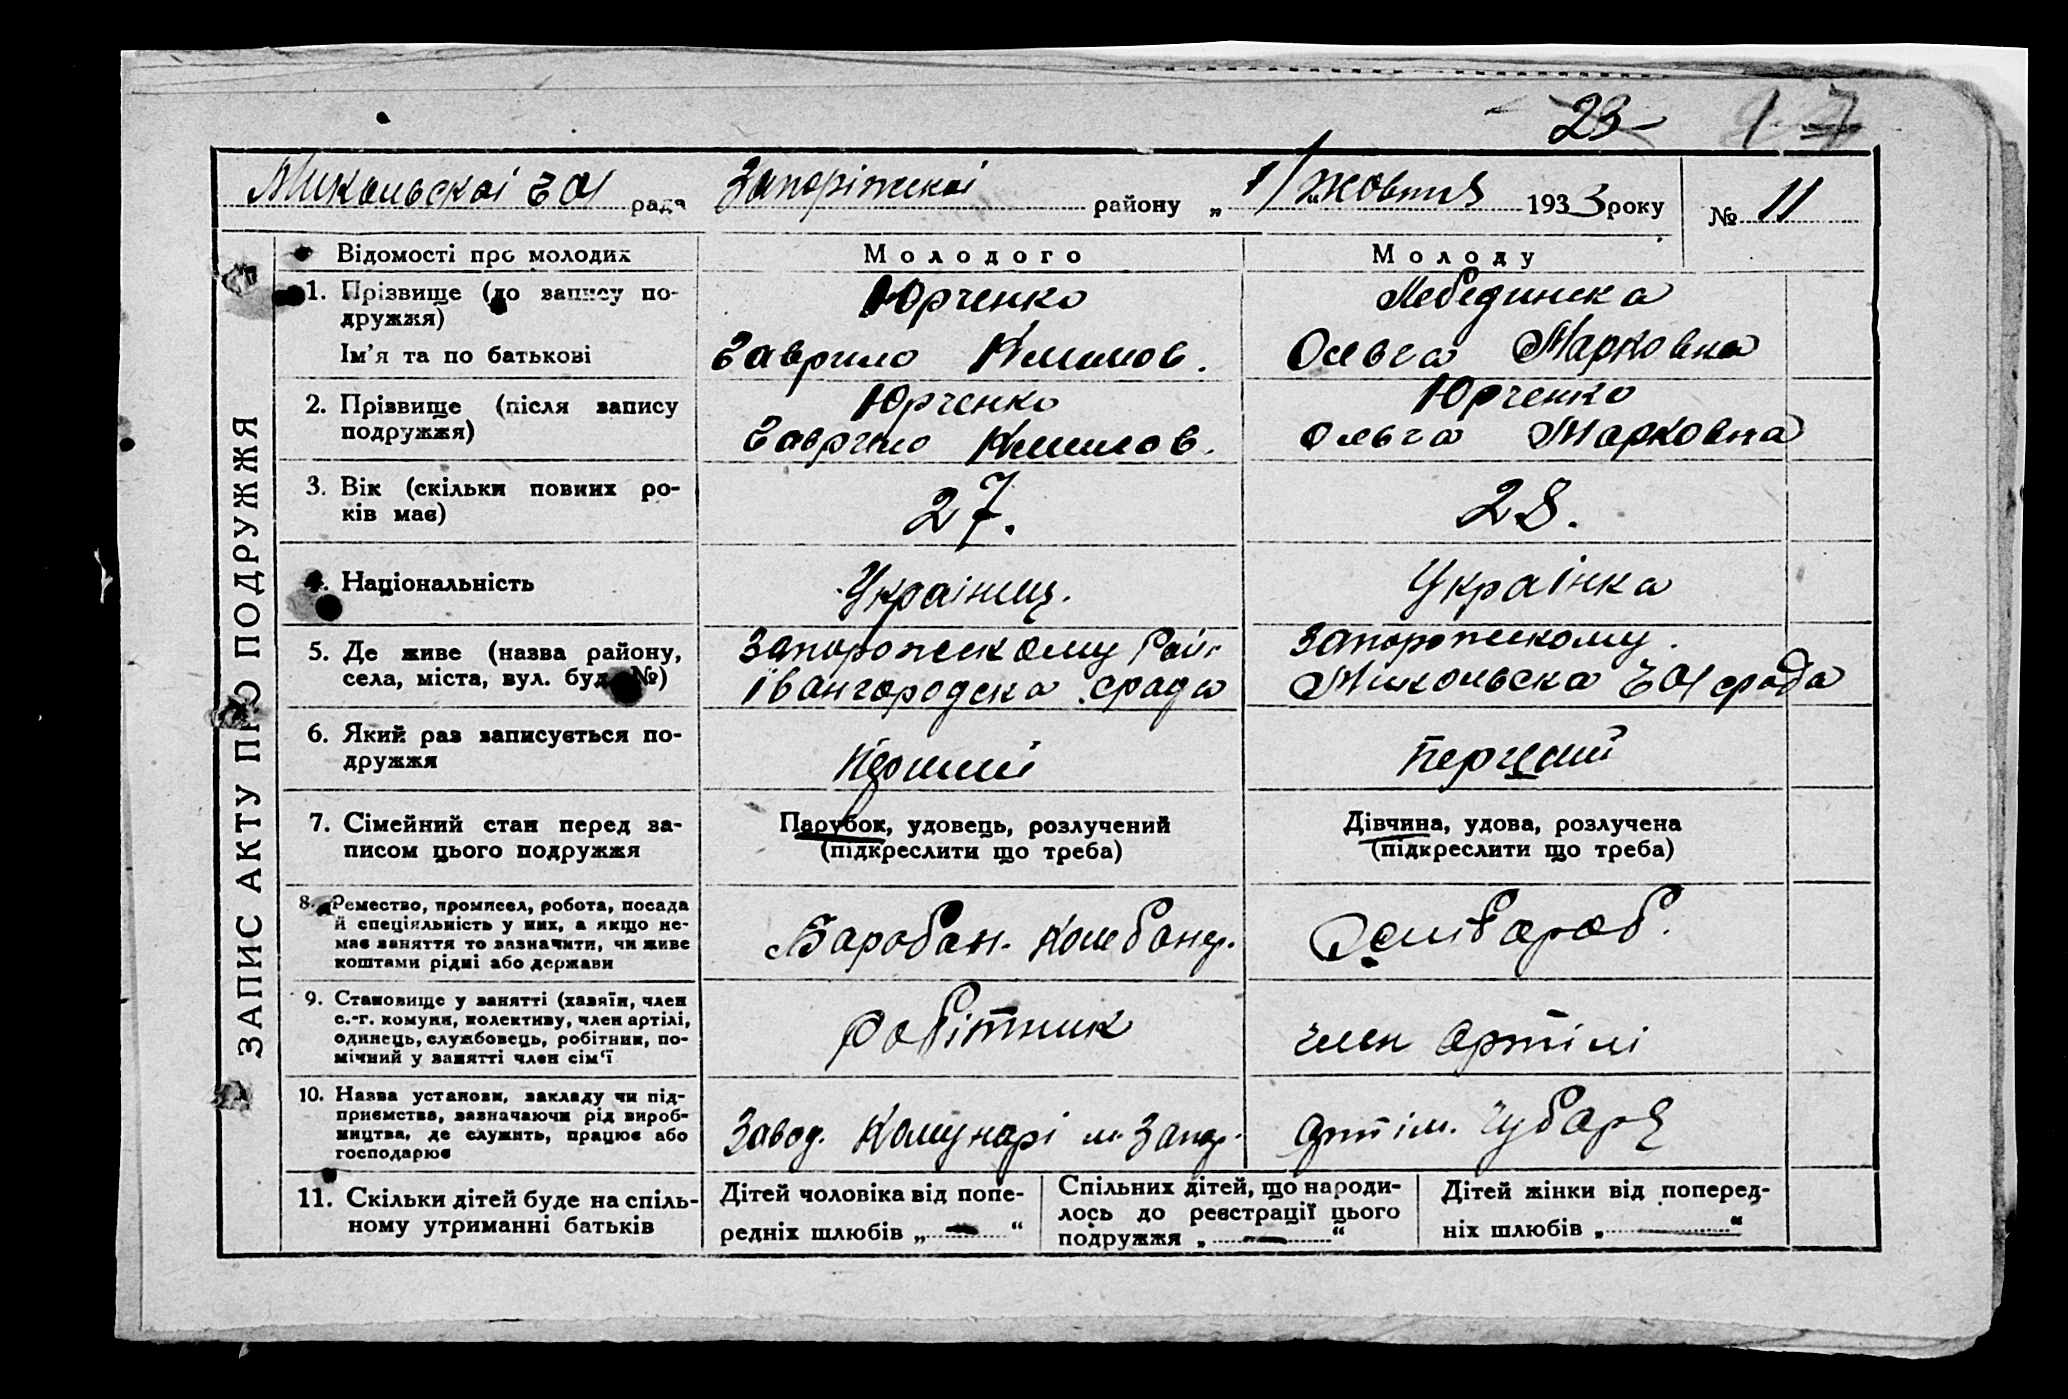 23
17
Микольскої рада Запоріжскої району „ 1/жовтня 1933 року № 11
ЗАПИС АКТУ ПРО ПОДРУЖЖЯ
Відомості про молодих Молодого Молоду
1. Прізвище (до запису по-
дружжя) Юрченко Лебединска
Ім'я та по батькові Гаврило Климов. Ольга Марковна
2. Прізвище (після запису
подружжя) Юрченко Гаврило Климов. Юрченко Ольга Марковна
3. Вік (скільки повних ро-
ків має) 27. 28.
4. Національність Українец. Українка
5. Де живе (назва району,
села, міста, вул. буд. №)
Запорожскому Рай.
Івангородска срада
Запорожскому.
Микольска срада
6. Який раз записується по-
дружжя Перший Перший
7. Сімейний стан перед за-
писом цього подружжя
Парубок, удовець, розлучений
(підкреслити що треба)
Дівчина, удова, розлучена
(підкреслити що треба)
8. Ремество, промисел, робота, посада
й спеціяльність у них, а якщо не-
має заняття то зазначити, чи живе
коштами рідні або держави
Барабан.
9. Становище у занятті (хазяїн, член
с.-г. комуни, колективу, член артілі,
одинець, службовець, робітник, по-
мічний у занятті член сім'ї
робітник
член артілі
10. Назва установи, закладу чи під-
приємства, зазначаючи рід вироб-
ництва, де служить, працює або
господарює
Завод. Комунарі м. Запор.
артіл. Чубаря
11. Скільки дітей буде на спіль-
ному утриманні батьків
Дітей чоловіка від попе-
редніх шлюбів „ — “
Спільних дітей, що народи-
лось до реєстрації цього
подружжя „ — “
Дітей жінки від поперед-
ніх шлюбів „ — “